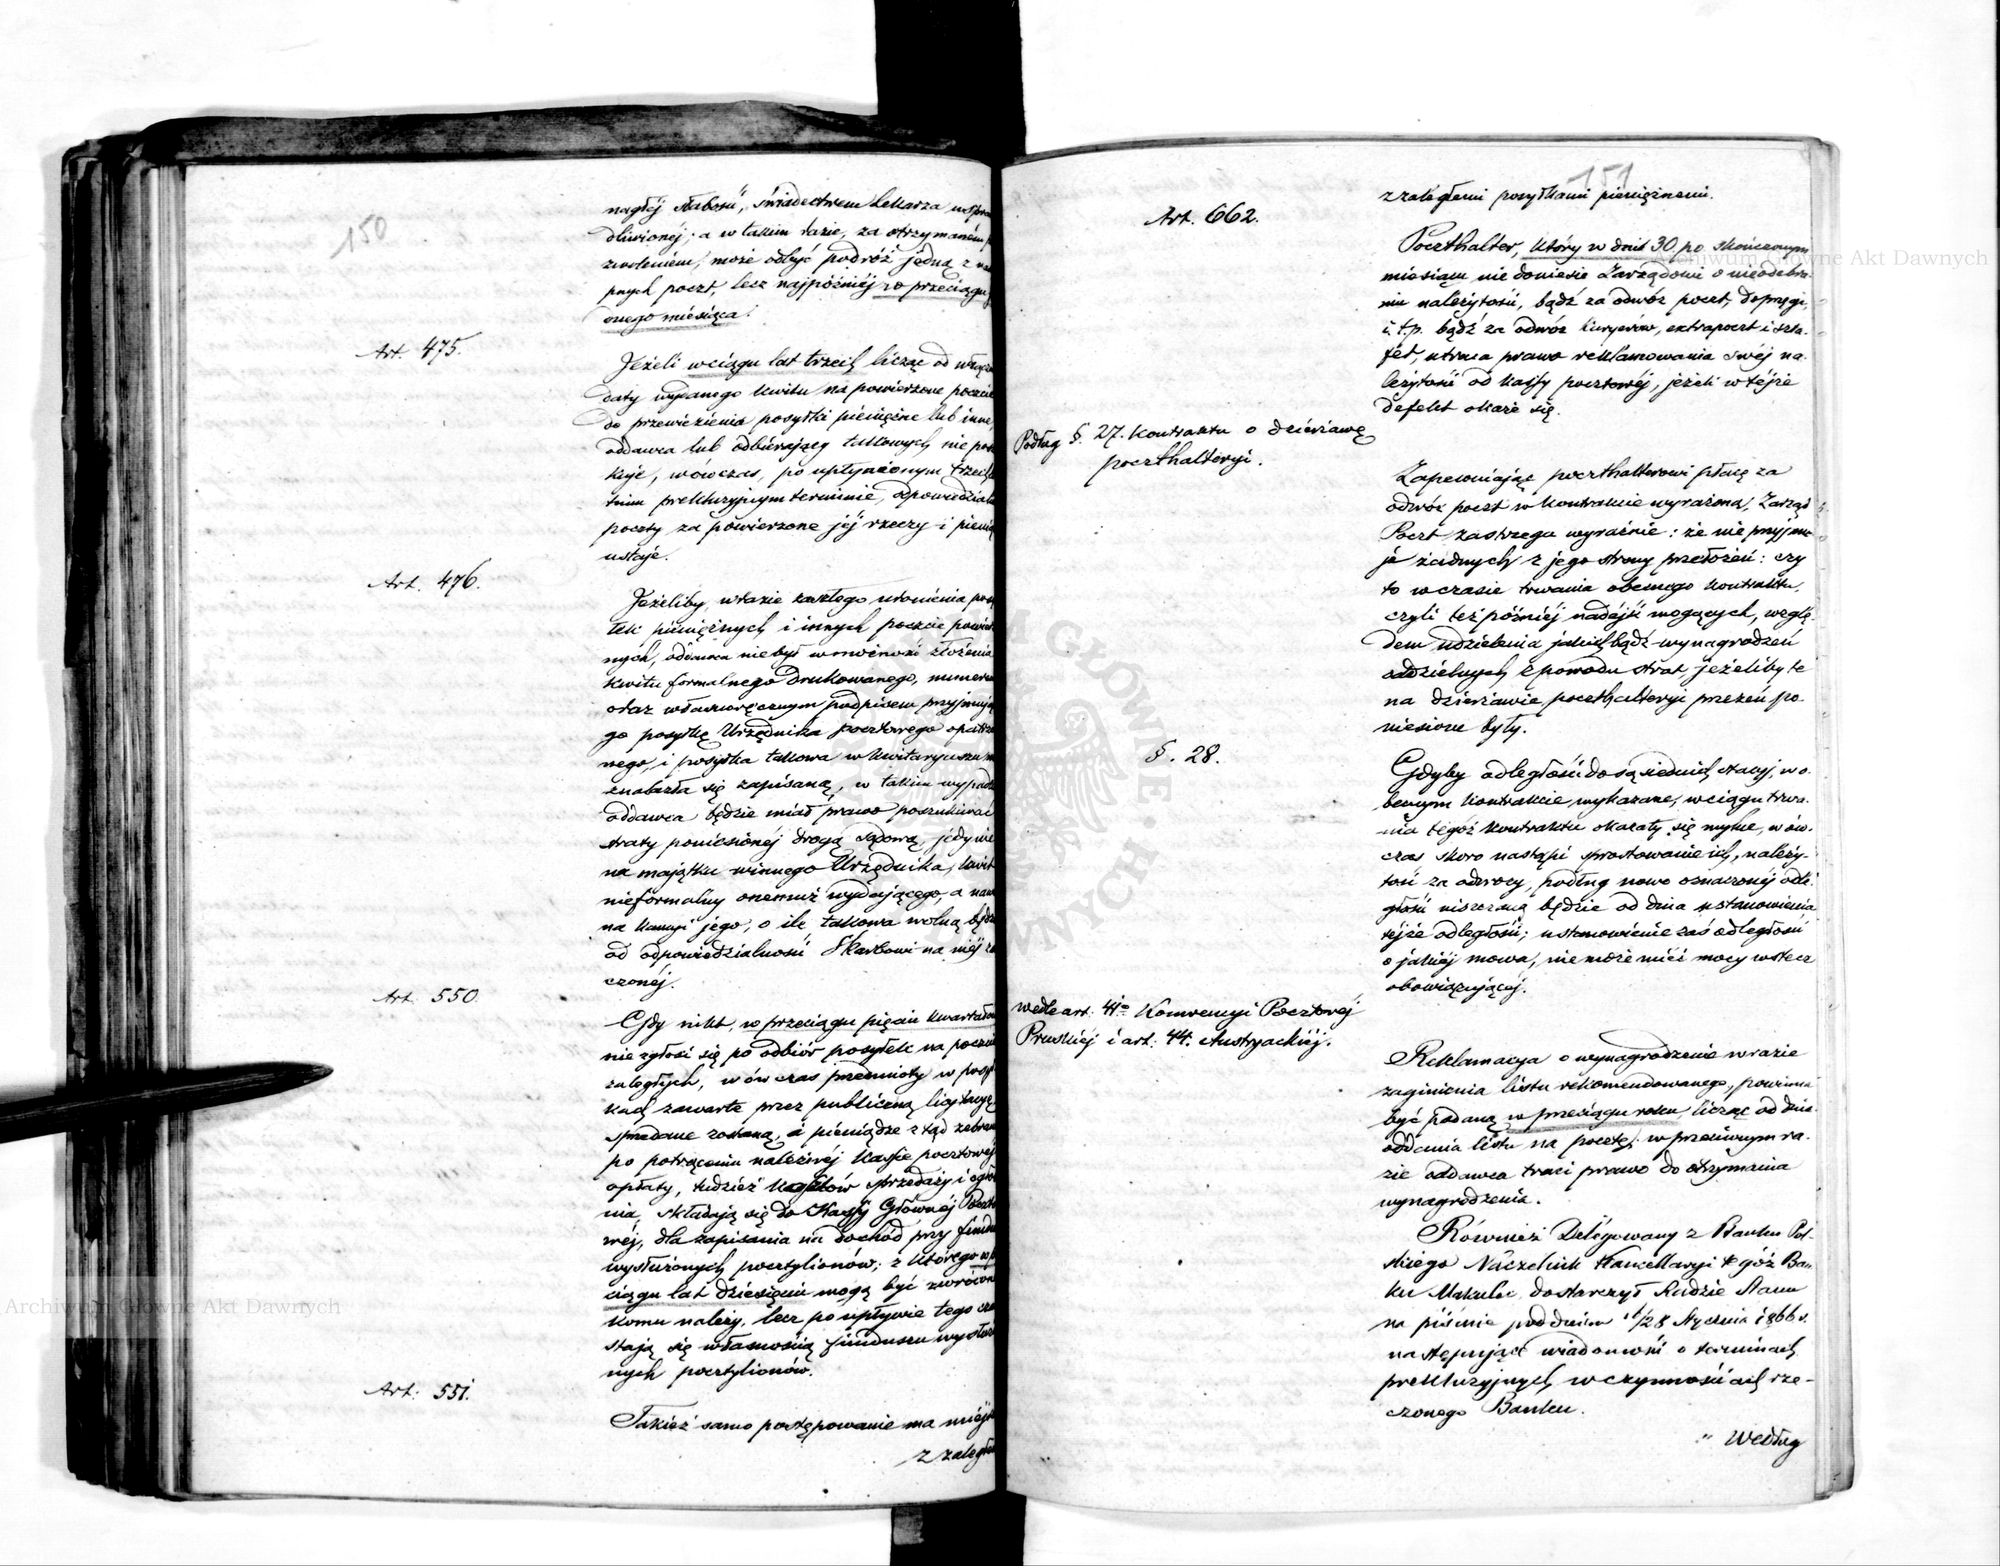 150
nagłéj słabości, świadectwem Lekarza uspra
dliwionéj; a w takim razie, za otrzymaném
zwoleniem, może odbyć podróż jedną z
pnych poczt, lecz najpóźniéj w przeciągu
onego miésiąca.
Art. 475.
Jeżeli w ciągu lat trzech licząc od
daty wydanego kwitu na powierzone poczcie
do przewiezienia posyłki pieniężne lub inne,
oddawca lub odbierający takowych nie pos
kuje, wówczas, po upłynionym trzech
tnim prekluzyjnym terminie, odpowiedzialn
poczty za powierzone jéj rzeczy i pienią
ustaje.
Art. 476.
Jeżeliby, w razie zaszłego uronienia posy
łek pieniężnych i innych poczcie powie
nych, oddawca nie był w możności złożenia
kwitu formalnego drukowanego, numerem
oraz własnoręcznym podpisem przyjmują
go posyłkę Urzędnika pocztowego opatrzo
nego, i posyłka takowa w kwitaryuszu
znalazła się zapisaną, w takim wypadku
oddawca będzie miał prawo poszukiwać
straty poniesionéj drogą sądową, jedynie
na majątku winnego Urzędnika, kwit
nieformalny onemuż wydającego, a naw
na kaucyi jego, o ile takowa wolną będzie
od odpowiedzialności Skarbowi na niéj
czonéj.
Art. 550.
Gdy nikt, w przeciągu pięciu kwartałów
nie zgłosi się po odbiór posyłek na poczcie
zaległych, wówczas przedmioty w posy
kach zawarte przez publiczną licytacyę
sprzedane zostaną, a pieniądze ztąd zebrane
po potrąceniu należnéj Kassie pocztowéj
opłaty, tudzież kosztów sprzedaży i ogło
nia, składają się do Kassy Głównéj Poczto
wéj, dla zapisania na dochód przy fundu
wysłużonych pocztylionów; z którego w
ciągu lat dziesięciu mogą być zwrócone
komu należy, lecz po upływie tego cza
stają się własnością funduszu wysłużo
nych pocztylionów.
Art. 551.
Takież samo postępowanie ma miéjs
z zaległe
151
z zaległemi posyłkami pieniężnemi.
Art. 662.
Poczthalter, który w dni 30 po skończonym
miesiącu nie doniesie Zarządowi o nieodebra-
niu należytości, bądź za odwóz poczt, doprzęgi,
i t.p. bądź za odwóz kuryerów, extrapoczt i szta-
fet, utraca prawo reklamowania swéj na-
leżytości od kassy pocztowéj, jeżeli w téjże
defekt okaże się.
Podług §. 27. Kontraktu o dzierżawę
poczthalteryi.
Zapewniając poczthalterowi płacę za
odwóz poczt w kontrakcie wyrażoną, Zarząd
Poczt zastrzega wyraźnie: że nie przyjmu
je żadnych z jego strony przełożeń: czy
to w czasie trwania obecnego kontraktu,
czyli też później nadejść mogących, wzglę-
dem udzielenia jakichbądź wynagrodzeń
oddzielnych z powodu strat, jeżeliby te
na dzierżawie poczthalteryi przezeń po-
niesione były.
§. 28.
Gdyby odległości do sąsiednich stacyj, w o-
becnym kontrakcie wykazane, w ciągu trwa-
nia tegoż kontraktu okazały się mylne, wów-
czas skoro nastąpi sprostowanie ich, należy-
tość za odwozy, podług nowo oznaczonéj odle-
głości uiszczaną będzie od dnia ustanowienia
téjże odległości; ustanowienie zaś odległości
o jakiéj mowa, nie może mieć mocy wstecz
obowiązującéj.
Wedle art. 41go Konwencyi Pocztowéj
Pruskiéj i art: 44. Austryackiéj.
Reklamacya o wynagrodzenie w razie
zaginienia listu rekomendowanego, powinna
być podaną w przeciągu roku licząc od dnia
oddania listu na pocztę; w przeciwnym ra-
zie oddawca traci prawo do otrzymania
wynagrodzenia.
Również Delegowany z Banku Pol-
skiego Naczelnik Kancellaryi tegóż Ban-
ku Makulec dostarczył Radzie Stanu
na piśmie pod dniem 16/28 Stycznia 1866 r.
następujące wiadomości o terminach
prekluzyjnych w czynnościach rze-
czonego Banku.
" Według
Archiwum Główne Akt Dawnych
Archiwum Główne Akt Dawnych